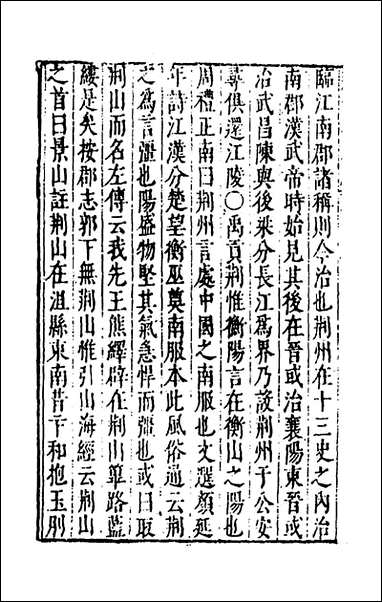 臨江南郡諸稱則今治也荆州在十三史之內治
南郡漢武帝時始見其後在晉或治襄陽東晉或
治武昌陳與後梁分長江爲界乃設荆州于公安
尋俱還江陵〇禹貢荆惟衡陽言在衡山之陽也
周禮正南曰荆州言處中國之南服也文選顔延
年詩江漢分楚望衡巫奠南服本此風俗通云荆
之爲言彊也陽盛物堅其氣急悍而彊也或曰取
荆山而名左傳云我先王熊繹辟在荆山篳路藍
縷是矣按郡志郭下無荆山惟引山海經云荆山
之首曰景山註荆山在沮縣東南昔卞和抱玉刖